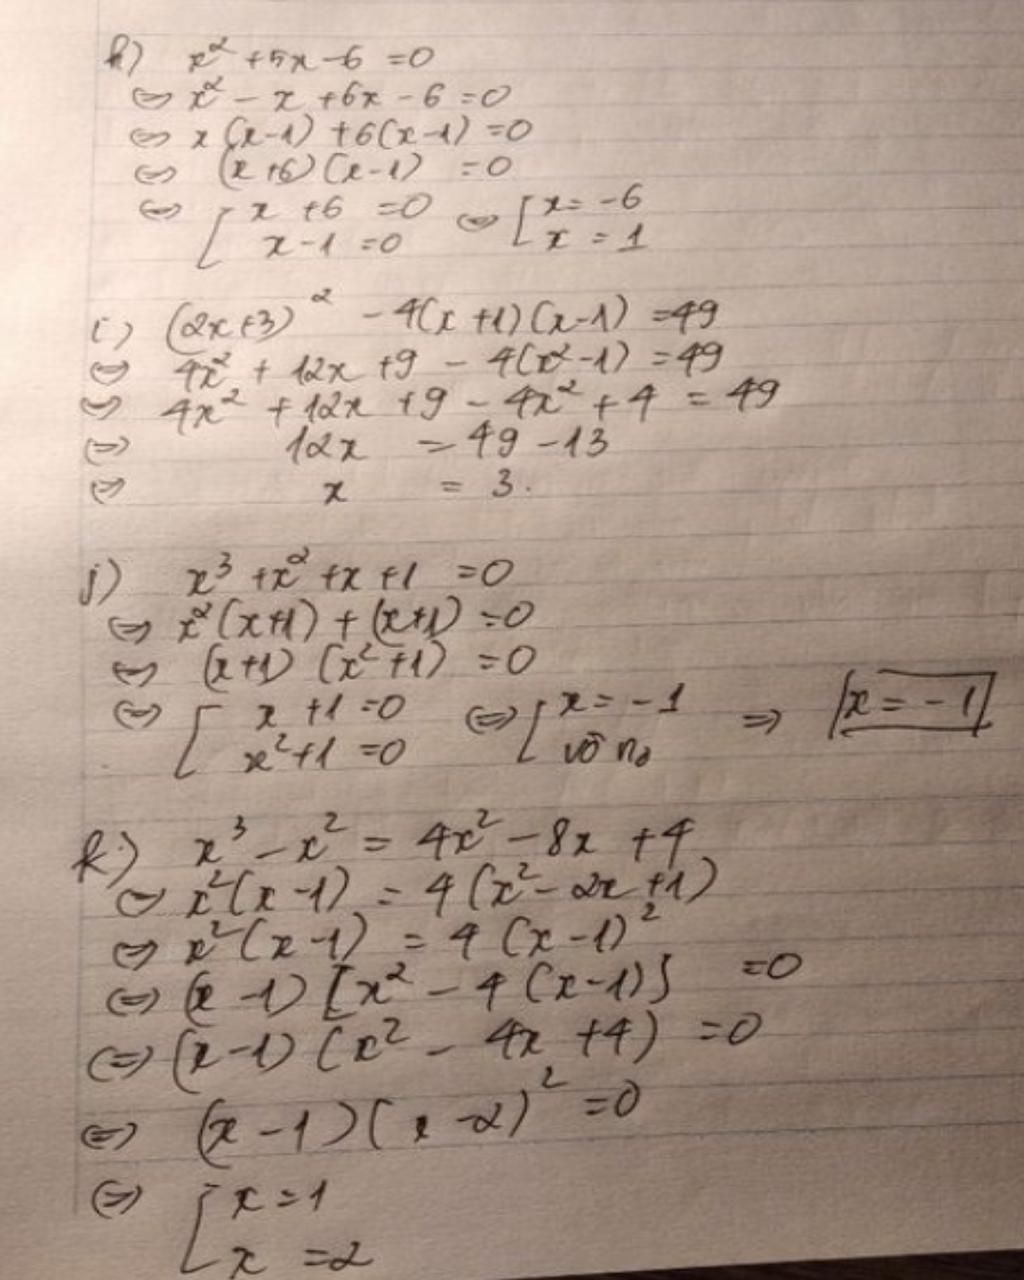 h) x² + 5x - 6 = 0
⇔ x² - x + 6x - 6 = 0
⇔ x(x-1) + 6(x-1) = 0
⇔ (x+6)(x-1) = 0
⇔ [ x + 6 = 0 ⇔ [ x = -6
x - 1 = 0 x = 1
i) (2x+3)² - 4(x+1)(x-1) = 49
⇔ 4x² + 12x + 9 - 4(x²-1) = 49
⇔ 4x² + 12x + 9 - 4x² + 4 = 49
⇔ 12x = 49 - 13
⇔ x = 3.
j) x³ + x² + x + 1 = 0
⇔ x²(x+1) + (x+1) = 0
⇔ (x+1)(x²+1) = 0
⇔ [ x + 1 = 0 ⇔ [ x = -1 ⇒ x = -1
x² + 1 = 0 vô no
k) x³ - x² = 4x² - 8x + 4
⇔ x²(x-1) = 4(x² - 2x + 1)
⇔ x²(x-1) = 4(x-1)²
⇔ (x-1)[x² - 4(x-1)] = 0
⇔ (x-1)(x² - 4x + 4) = 0
⇔ (x-1)(x-2)² = 0
⇔ [ x = 1
x = 2